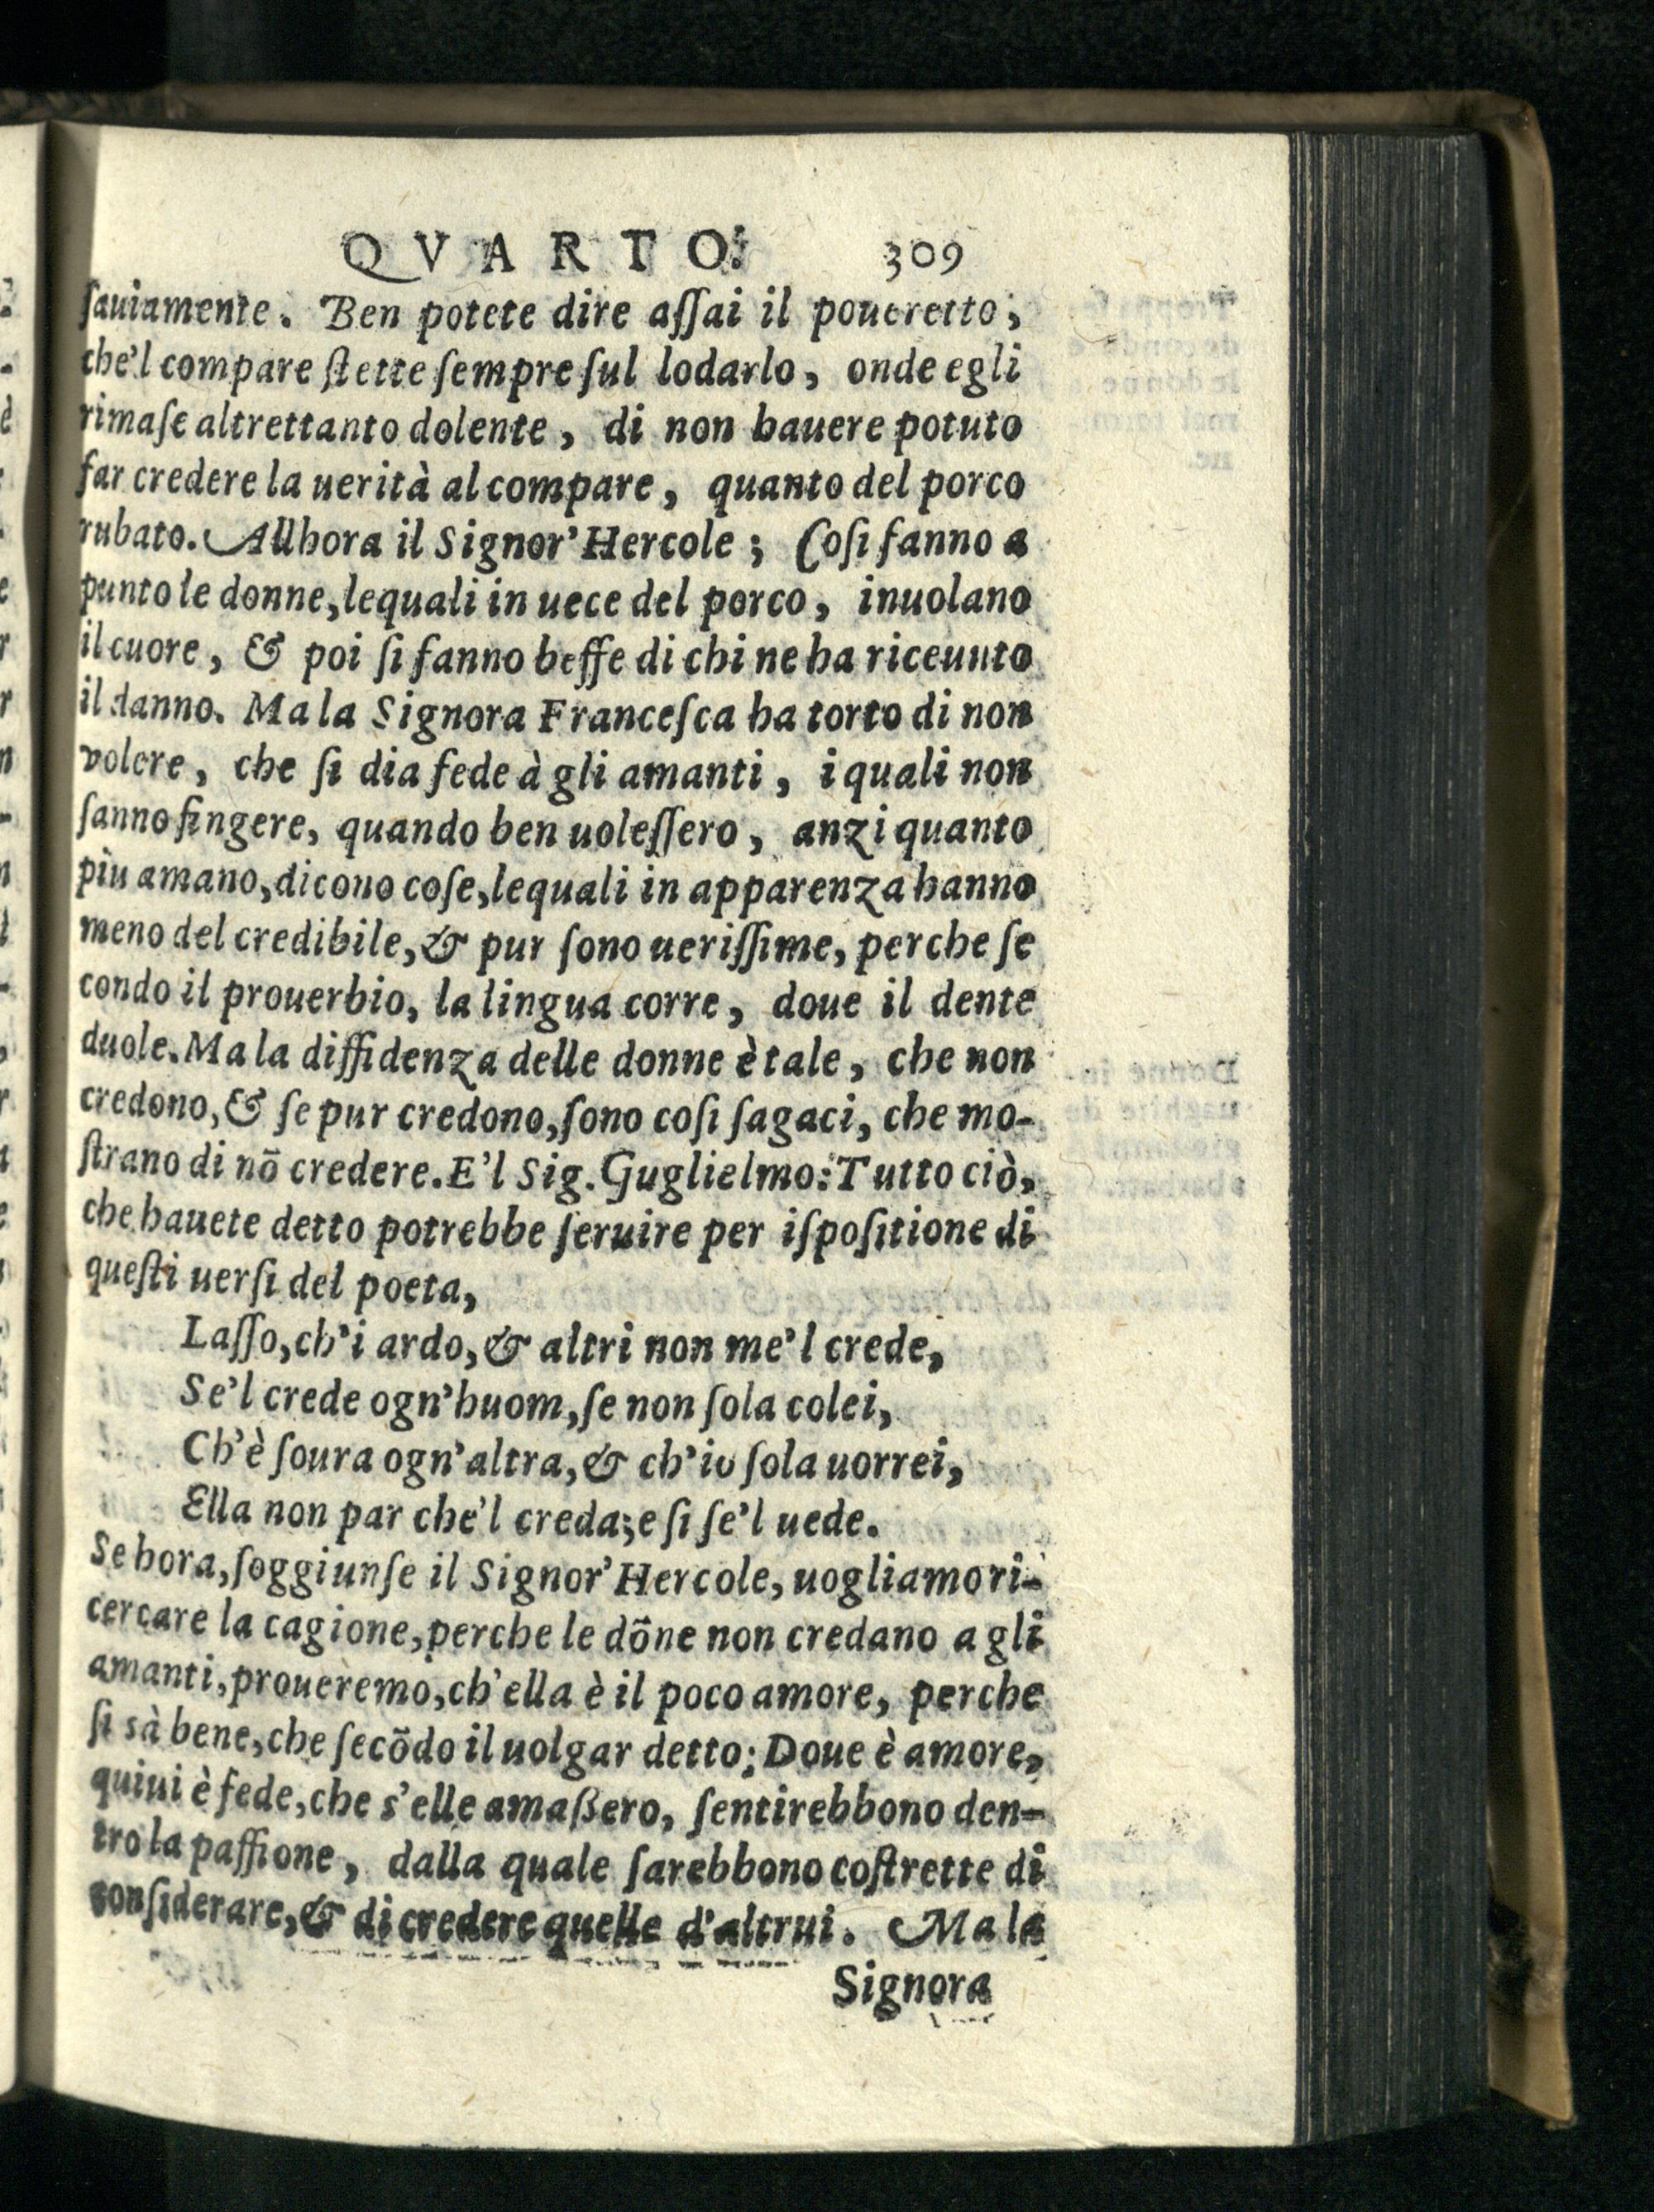 QVARTO. 309
ſauiamente. Ben potete dire aſſai il poueretto;
che'l compare ſtette ſempre ſul lodarlo, onde egli
rimaſe altrettanto dolente, di non hauere potuto
far credere la uerità al compare, quanto del porco
rubato. Allhora il Signor' Hercole; Coſi fanno a
punto le donne, lequali in uece del porco, inuolano
il cuore, & poi ſi fanno beffe di chi ne ha riceuuto
il danno. Ma la Signora Franceſca ha torto di non
volere, che ſi dia fede à gli amanti, i quali non
ſanno fingere, quando ben uoleſſero, anzi quanto
piu amano, dicono coſe, lequali in apparenza hanno
meno del credibile, & pur ſono ueriſſime, perche ſe
condo il prouerbio, la lingua corre, doue il dente
duole. Ma la diffidenza delle donne è tale, che non
credono, & ſe pur credono, ſono coſi ſagaci, che mo-
ſtrano di nõ credere. E'l Sig. Guglielmo: Tutto ciò,
che hauete detto potrebbe ſeruire per iſpoſitione di
queſti uerſi del poeta,
Laſſo, ch'i ardo, & altri non me'l crede,
Se'l crede ogn'huom, ſe non ſola colei,
Ch'è ſoura ogn'altra, & ch'io ſola uorrei,
Ella non par che'l creda; e ſi ſe'l uede.
Se hora, ſoggiunſe il Signor' Hercole, uogliamo ri-
cercare la cagione, perche le dõne non credano a gli
amanti, proueremo, ch'ella è il poco amore, perche
ſi sà bene, che ſecõdo il uolgar detto; Doue è amore,
quiui è fede, che s'elle amaßero, ſentirebbono den-
tro la paſſione, dalla quale ſarebbono coſtrette di
conſiderare, & di credere quelle d'altrui. Ma la
Signora